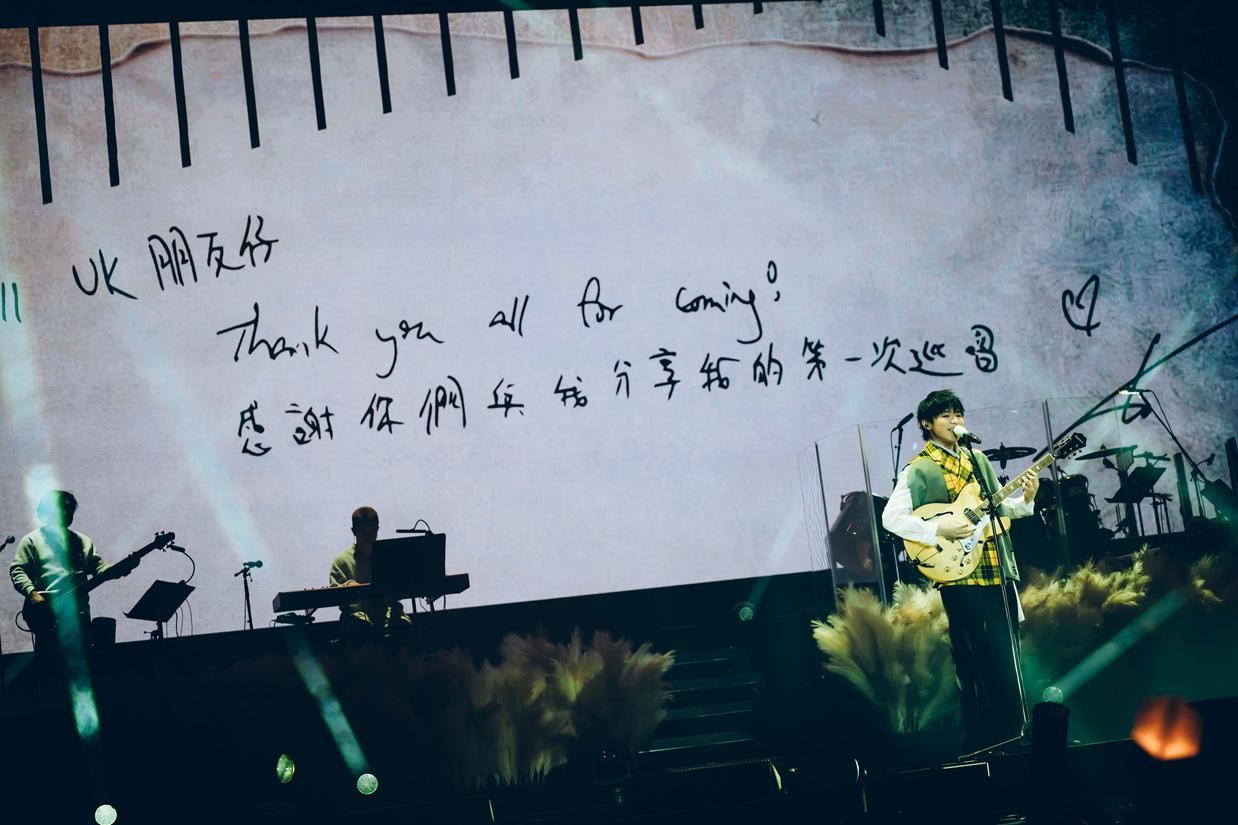 UK 朋友仔
Thank you all for coming!
感謝你們與我分享我的第一次巡習